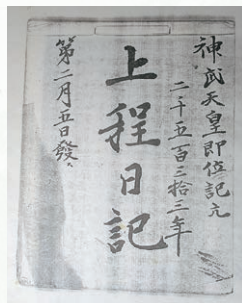 神武天皇即位記元
二千五百三拾三年
上程日記
第二月五日發